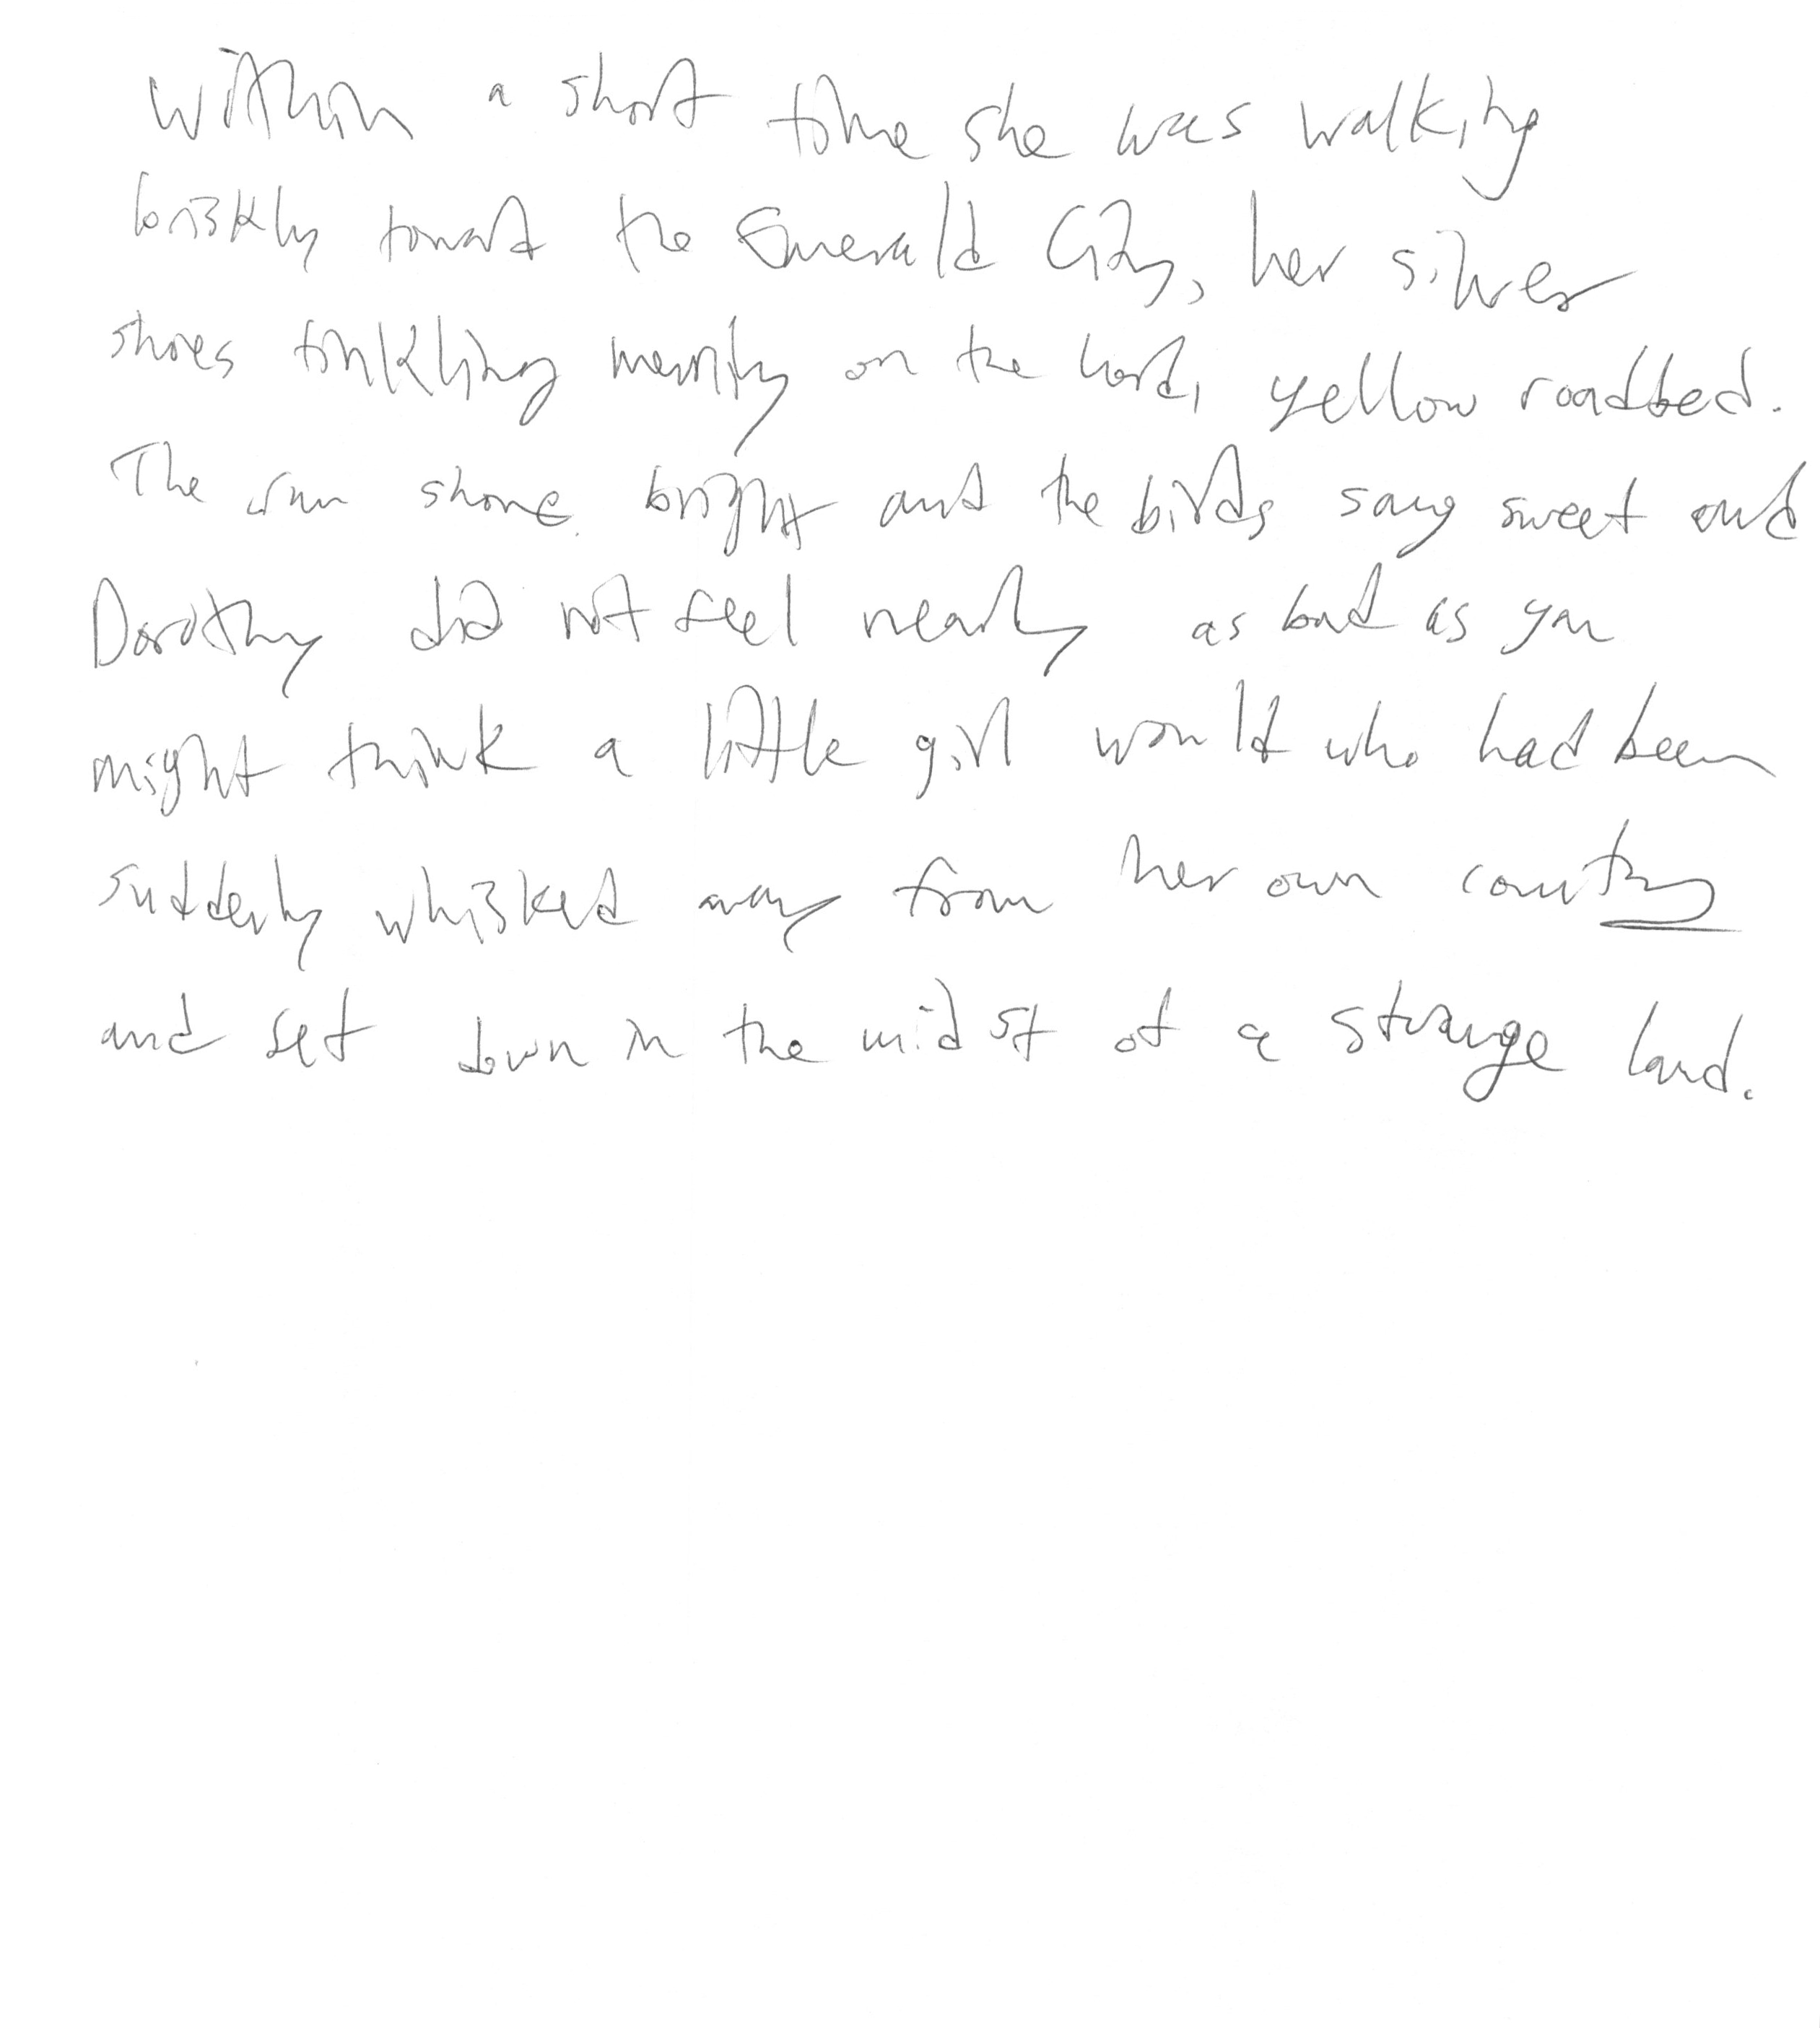 Within a short time she was walking
briskly toward the Emerald City, her silver
shoes tinkling merrily on the hard, yellow roadbed.
The sun shone bright and the birds sang sweet and
Dorothy did not feel nearly as bad as you
might think a little girl would who had been
suddenly whisked away from her own country
and set down in the midst of a strange land.